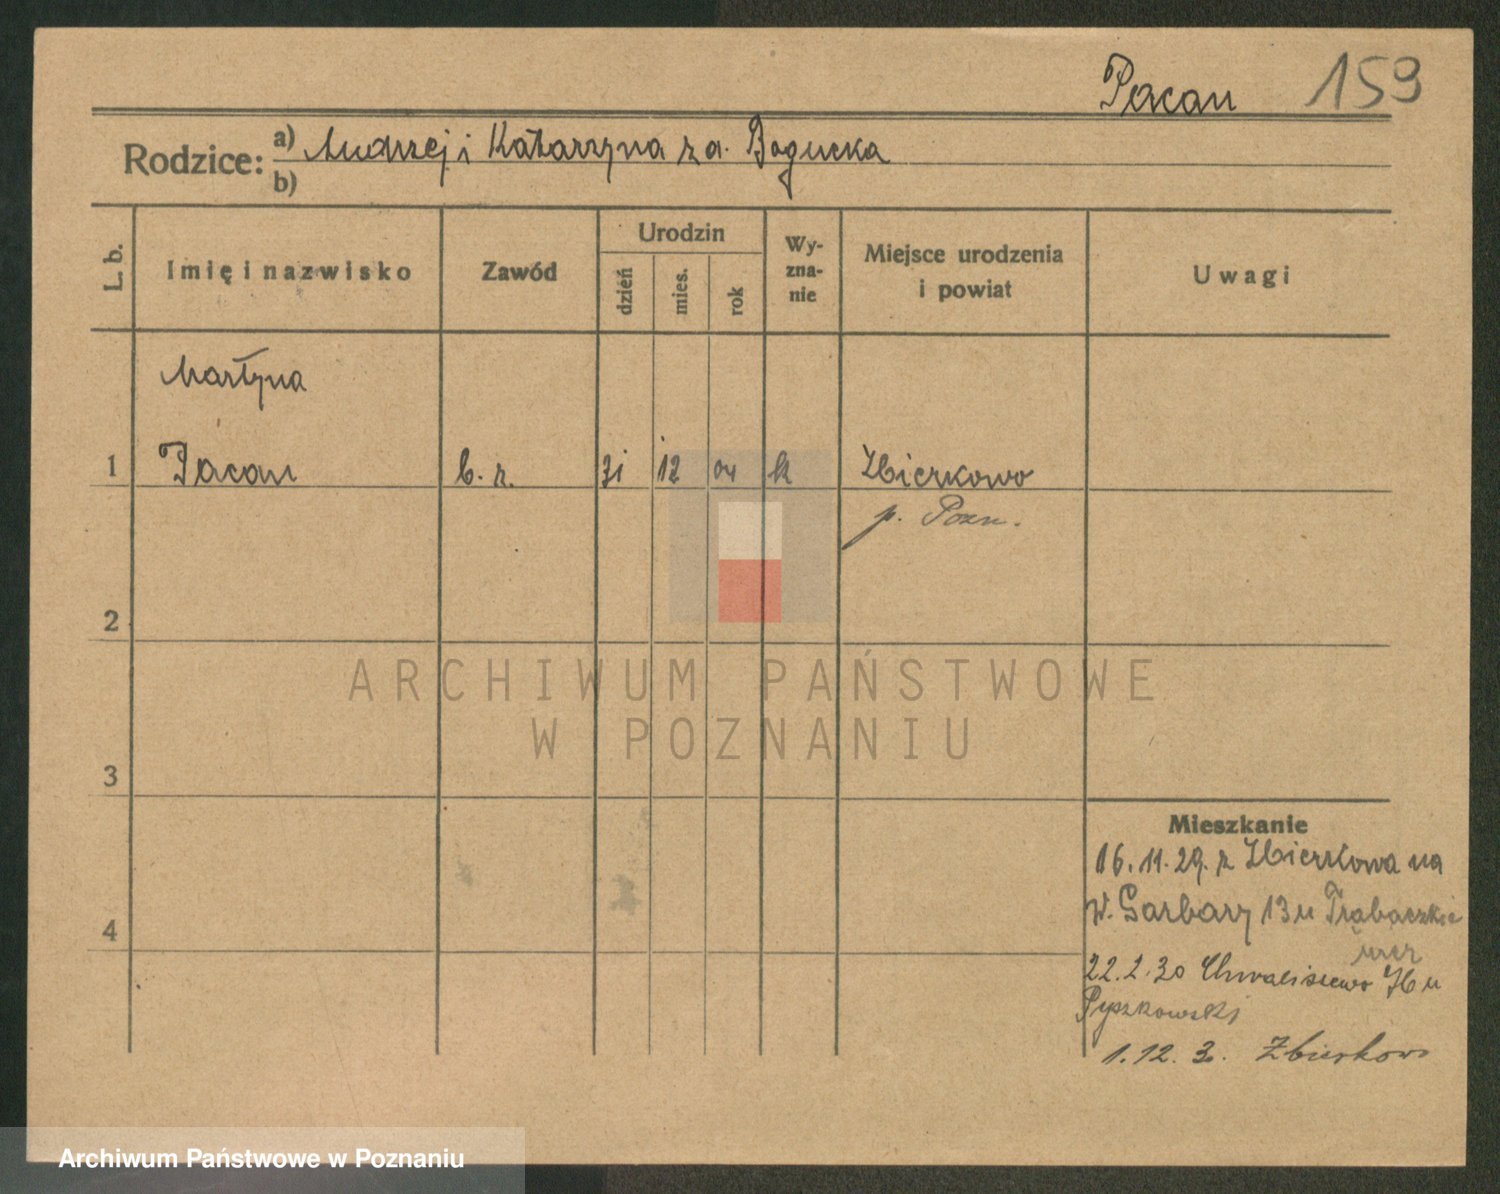 Pacan 159
Rodzice: a) Andrzej i Katarzyna z d. Bogucka
b)
L. b.
Imię i nazwisko
Zawód
Urodzin
dzień
mies.
rok
Wy-
zna-
nie
Miejsce urodzenia
i powiat
Uwagi
Martyna
1 Pacan b. z. 31 12 04 k Zbierkowo
p. Pozn.
2
3
4
Mieszkanie
16.11.29. z Zbierkowa na
W. Garbary 13 u Trabaczkie
wicz
22.2.30 Chwaliszewo 76 u
Pyszkowski
1.12.3. Zbierkowo
ARCHIWUM PAŃSTWOWE
W POZNANIU
Archiwum Państwowe w Poznaniu